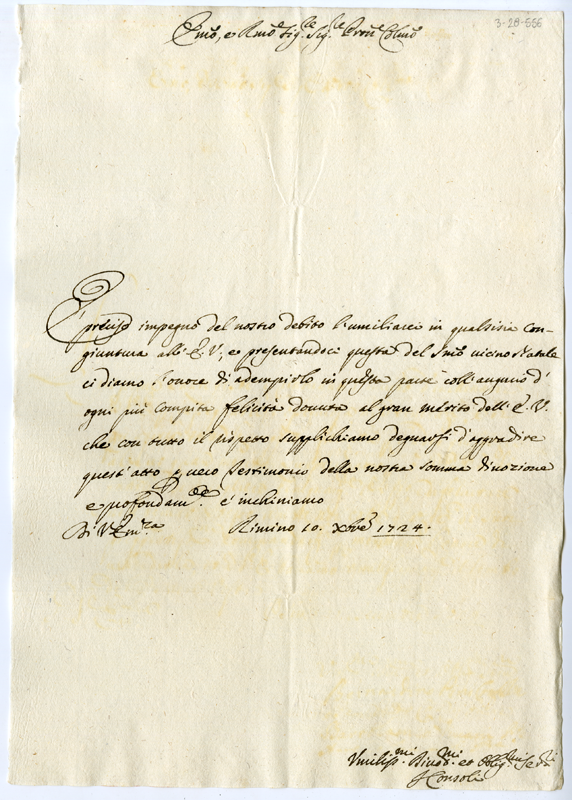 3-20-556
Emo, e Rmo Sig.re Sig.re Pron Colmo
È preciso impegno del nostro debito l'umiliarci in qualsisia con-
giuntura all'E.V., e presentandoci questa del Smo vicino Natale
ci diamo l'onore di adempirlo in questa parte coll'augurio d'
ogni più compita felicità dovuta al gran merito dell'E.V.
che con tutto il rispetto supplichiamo degnarsi d'aggradire
quest'atto p vero testimonio della nostra somma divozione
e profondam.te c'inchiniamo
Di V Em.za Rimino 10. Xbre 1724.
Umiliss.mi Divot.mi et Obblig.mi Se.ri
I Consoli